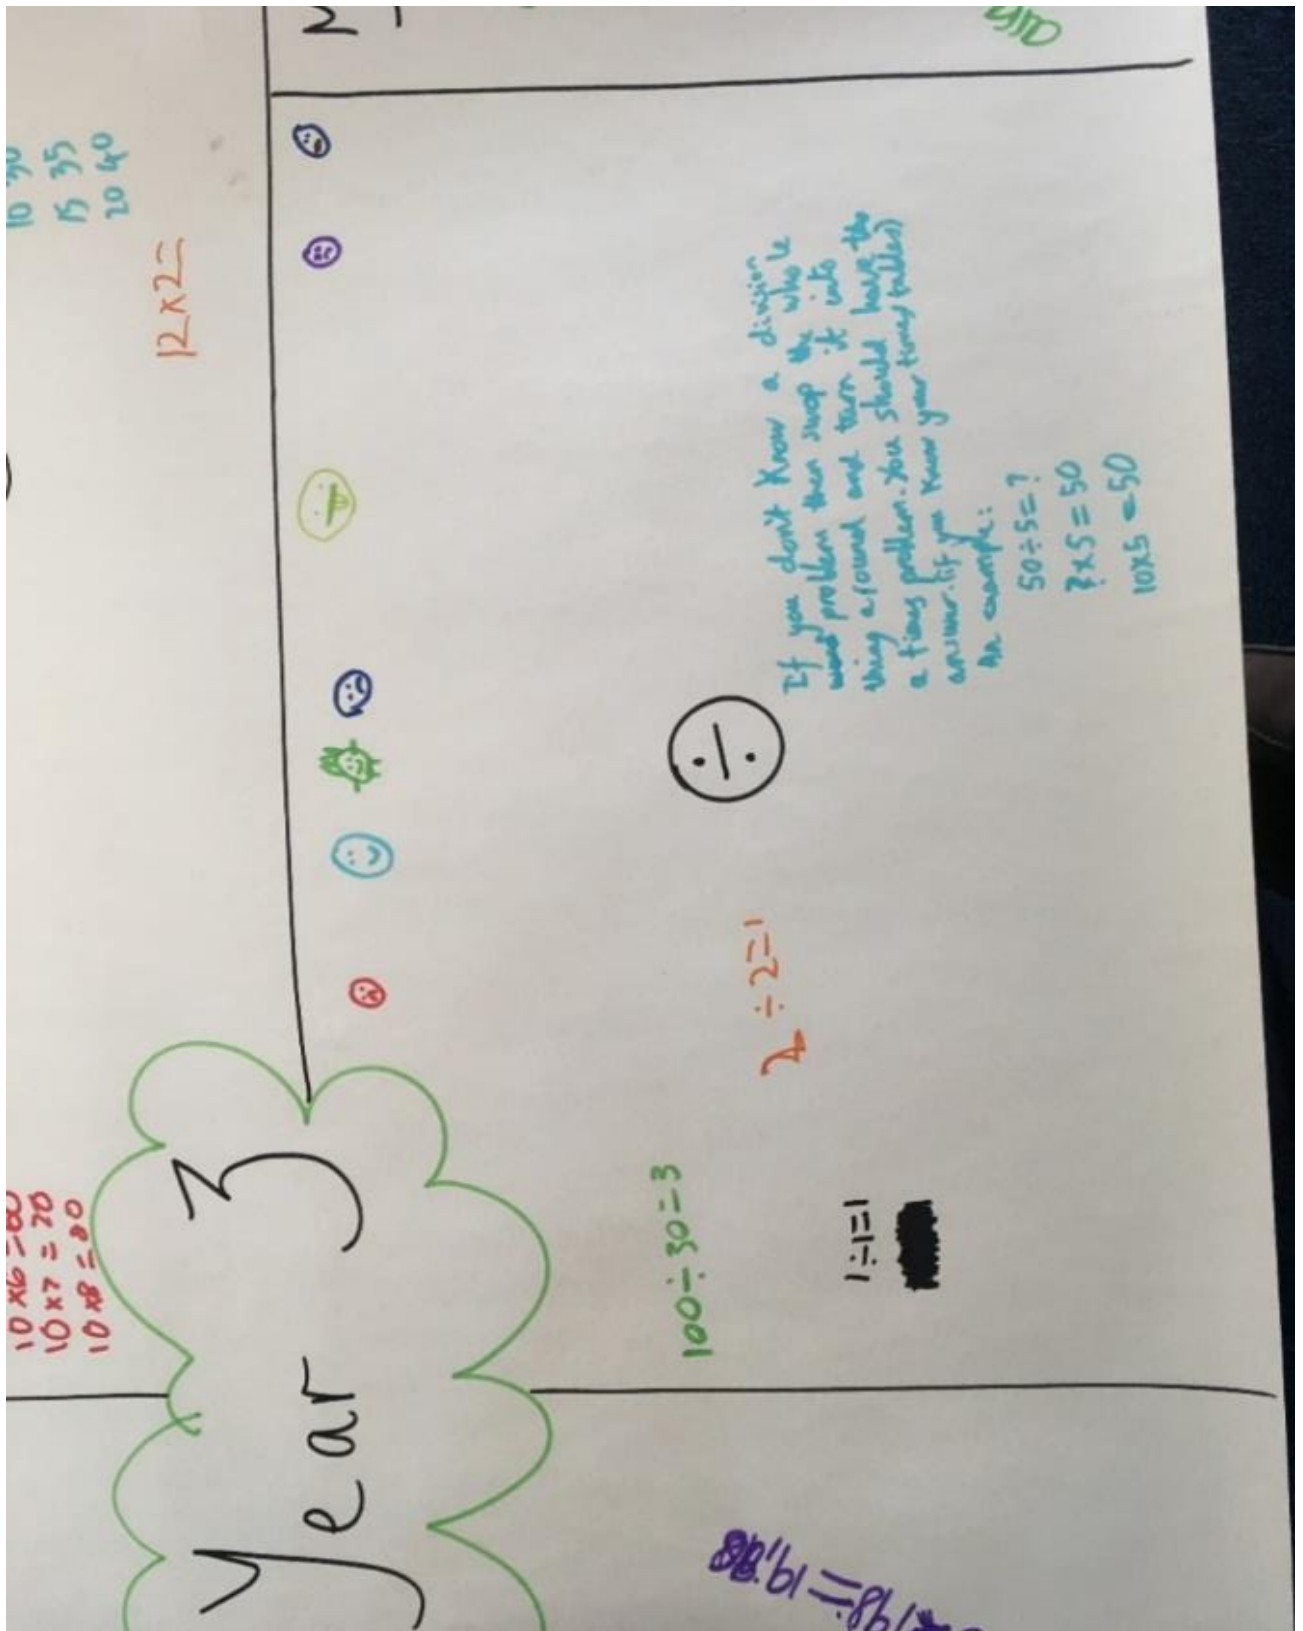 10 x6 = 60
10 x7 = 70
10 x8 = 80
15 35
20 40
12x2=
Year 3
÷
100÷30=3
2÷2=1
1÷1=1
If you don't know a division
problem then swop the whole
thing around and turn it into
a times problem. You should have the
answer. (if you know your times tables)
An example:
50÷5=?
?x5=50
10x5=50